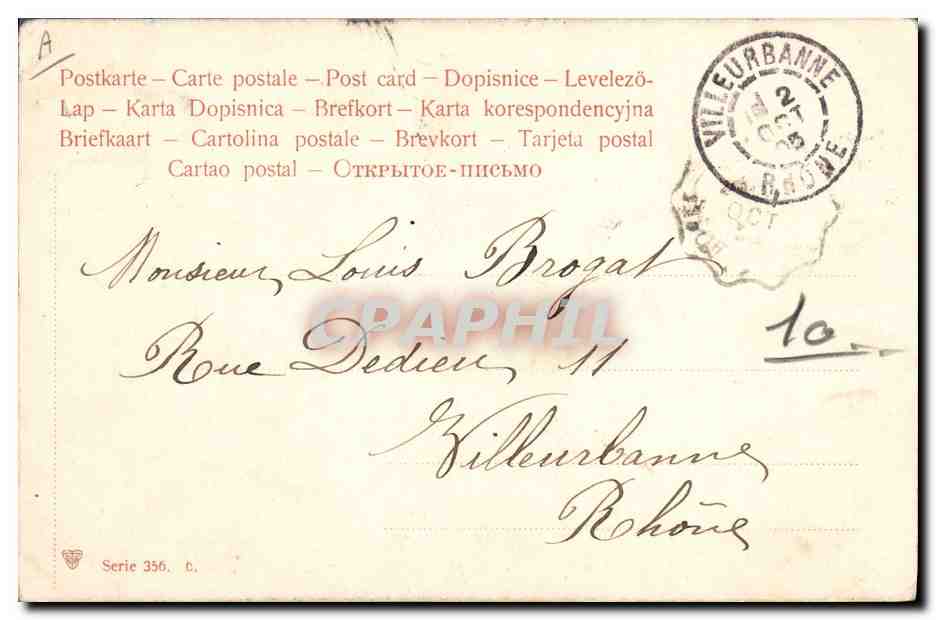 A
Postkarte – Carte postale – Post card – Dopisnice – Levelező-
Lap – Karta Dopisnica – Brefkort – Karta korespondencyjna
Briefkaart – Cartolina postale – Brevkort – Tarjeta postal
Cartao postal – Открытое-письмо
VILLEURBANNE
2
OCT
05
RHÔNE
OCT
Monsieur Louis Brogat
CPAPHIL
Rue Dedieu 11
10
Villeurbanne
Rhône
Serie 356.